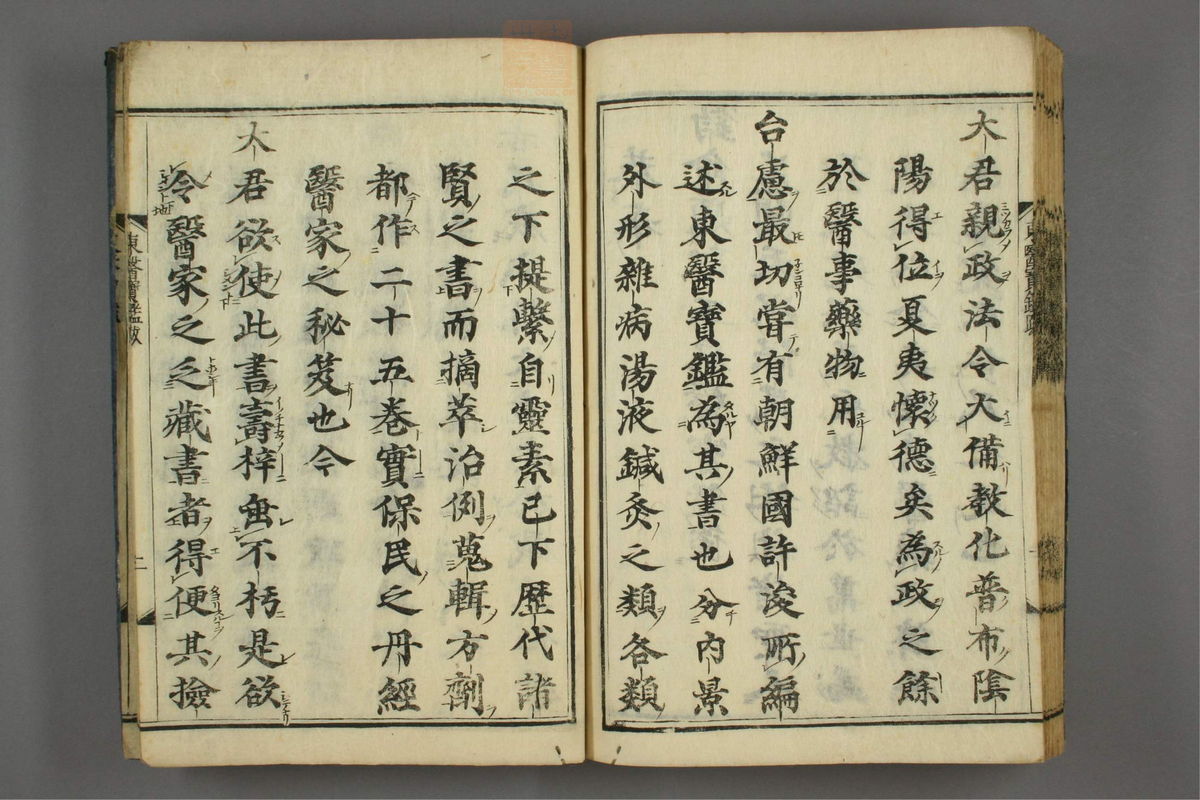 大君親政法令大備教化普布陰
陽得位夏夷懷德矣為政之餘
於醫事藥物用
台慮最切嘗有朝鮮國許浚所編
述東醫寶鑑為其書也分内景
外形雜病湯液鍼灸之類各類
之下提繫自靈素已下歷代諸
賢之書而摘萃治例蒐輯方劑
都作二十五卷實保民之丹經
醫家之秘笈也今
大君欲使此書壽梓蚩不朽是欲
令醫家之乏藏書者得便其撿